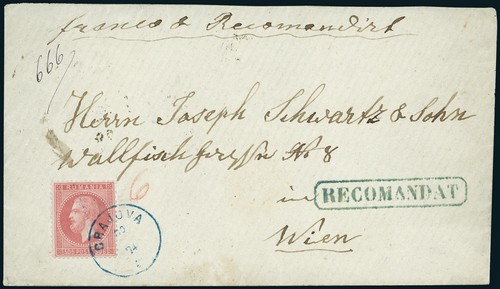 franco & Recomandirt
666
Herrn Joseph Schwartz & Sohn
Wallfischgasse Nr 8
in
Wien
RECOMANDAT
6
RUMANIA
CRAJOVA